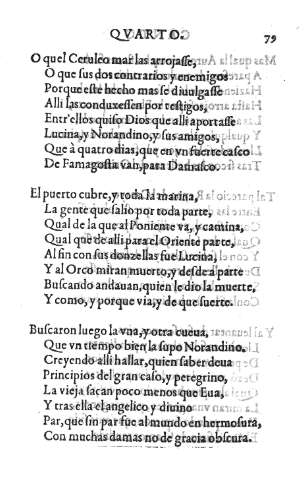 QVARTO. 79
O que l Ceruleo mar las arrojasse,
O que sus dos contrarios y enemigos
Porque este hecho mas se diuulgasse
Alli las conduxessen por testigos,
Entr'ellos quiso Dios que alli aportasse
Lucina, y Norandino, y sus amigos,
Que à quatro dias, que en vn fuerte casco
De Famagosta van, para Damasco.
El puerto cubre, y toda la marina,
La gente que salio por toda parte,
Qual de la que al Poniente va, y camina,
Qual que de alli para el Oriente parte,
Al fin con sus donzellas fue Lucina,
Y al Orco miran muerto, y desde a parte
Buscando andauan, quien le dio la muerte,
Y como, y porque via, y de que suerte.
Buscaron luego la vna, y otra cueua,
Que vn tiempo bien la supo Norandino.
Creyendo alli hallar, quien saber deua
Principios del gran caso, y peregrino,
La vieja sacan poco menos que Eua,
Y tras ella el angelico y diuino
Par, que sin par fue al mundo en hermosura,
Con muchas damas no de gracia obscura.